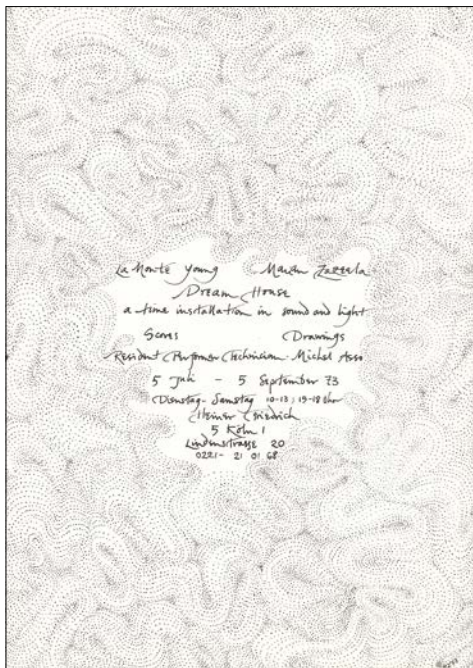 La Monte Young Marian Zazeela
Dream House
a time installation in sound and light
Scores Drawings
Resident Performer Technician Michel Asso
5 Juli - 5 September 73
Dienstag-Samstag 10-13; 15-18 Uhr
Heiner Friedrich
5 Köln 1
Lindenstrasse 20
0221- 21 01 68